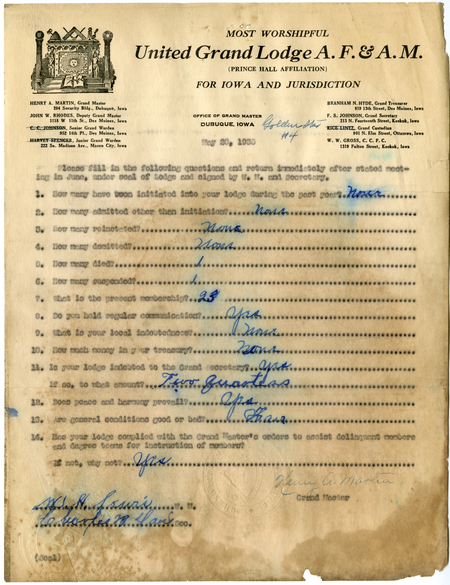 MOST WORSHIPFUL
United Grand Lodge A. F. & A. M.
(PRINCE HALL AFFILIATION)
FOR IOWA AND JURISDICTION
HENRY A. MARTIN, Grand Master
204 Security Bldg., Dubuque, Iowa
JOHN W. RHODES, Deputy Grand Master
1118 W 11th St., Des Moines, Iowa
C. C. JOHNSON, Senior Grand Warden
952 14th Pl., Des Moines, Iowa
HARVEY SEENEAR, Junior Grand Warden
222 So. Madison Ave., Mason City, Iowa
OFFICE OF GRAND MASTER
DUBUQUE, IOWA
Golden Star
#4
BRANHAM N. HYDE, Grand Treasurer
819 13th Street, Des Moines, Iowa
F. S. JOHNSON, Grand Secretary
213 N. Fourteenth Street, Keokuk, Iowa
RICE LINTZ, Grand Custodian
W. W. GROSS, C. C. F. C.
1319 Fulton Street, Keokuk, Iowa
May 20, 1938
Please fill in the following questions and return immediately after stated meet-
ing in June, under seal of Lodge and signed by W. M. and Secretary.
1. How many have been initiated into your lodge during the past year? None
2. How many admitted other then initiation? None
3. How many reinstated? None
4. How many demitted? None
5. How many died? 1
6. How many suspended? 1
7. What is the present membership? 23
8. Do you hold regular communication? Yes
9. What is your local indebtedness? None
10. How much money in your treasury? None
11. Is your lodge indebted to the Grand Secretary? Yes
If so, to what amount? Two Quarters
12. Does peace and harmony prevail? Yes
13. Are general conditions good or bad? Fair
14. Has your lodge complied with the Grand Master's orders to assist delinquent members
and degree teams for instruction of members?
If not, why not? Yes
Henry A. Martin
Grand Master
W. M.
Sec.
(Seal)